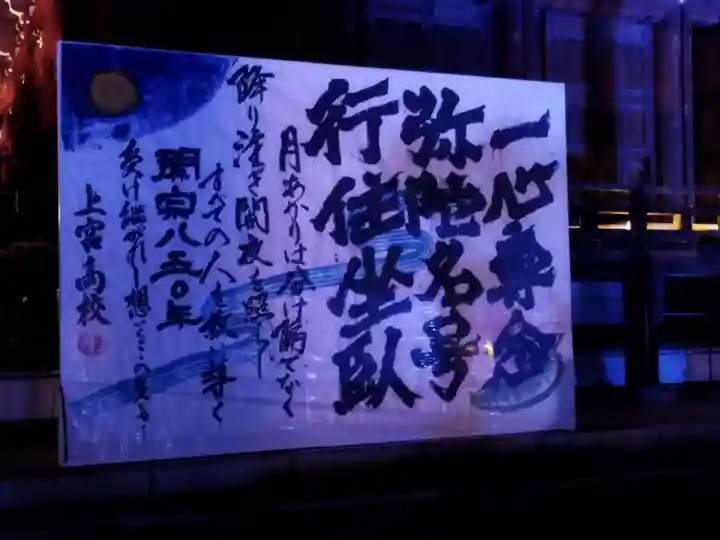 一心専念
弥陀名号
行住坐臥
月あかりは分け隔てなく
降り注ぎ闇夜を照らし
すべての人を救い導く
開宗八五〇年
受け継がれし想いをこの度も
上宮高校